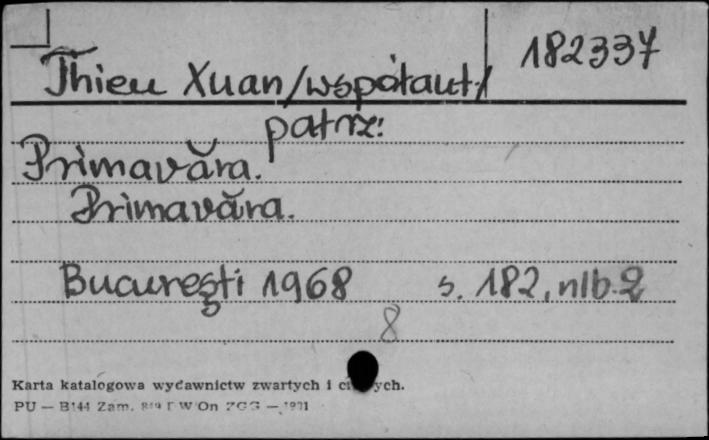 182337
Thieu Xuan/współaut./
patrz:
Primavăra.
Primavăra.
București 1968 s. 182, nlb. 2
8
Karta katalogowa wydawnictw zwartych i ych.
PU — B144 Zam. D W On ZGG —